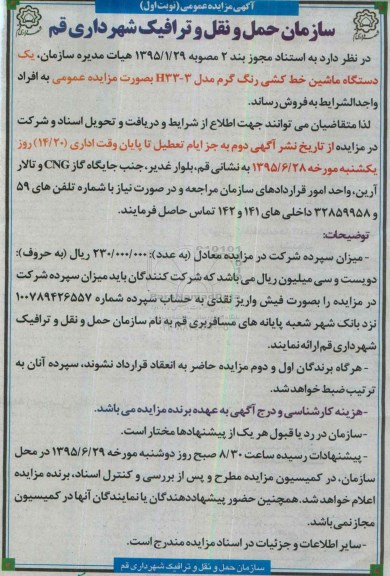 آگهی مزایده عمومی (نوبت اول)
سازمان حمل و نقل و ترافیک شهرداری قم
در نظر دارد به استناد مجوز بند ۲ مصوبه ۱۳۹۵/۱/۲۹ هیات مدیره سازمان، یک
دستگاه ماشین خط کشی رنگ گرم مدل H۳۳-۳ بصورت مزایده عمومی به افراد
واجدالشرایط به فروش رساند.
لذا متقاضیان می توانند جهت اطلاع از شرایط و دریافت و تحویل اسناد و شرکت
در مزایده از تاریخ نشر آگهی دوم به جز ایام تعطیل تا پایان وقت اداری (۱۴/۲۰) روز
یکشنبه مورخه ۱۳۹۵/۶/۲۸ به نشانی قم، بلوار غدیر، جنب جایگاه گاز CNG و تالار
آرین، واحد امور قراردادهای سازمان مراجعه و در صورت نیاز با شماره تلفن های ۵۹
و ۳۲۸۵۹۹۵۸ داخلی های ۱۴۱ و ۱۴۲ تماس حاصل فرمایند.
توضیحات:
- میزان سپرده شرکت در مزایده معادل (به عدد): ۲۳۰/۰۰۰/۰۰۰ ریال (به حروف):
دویست و سی میلیون ریال می باشد که شرکت کنندگان باید میزان سپرده شرکت
در مزایده را بصورت فیش واریز نقدی به حساب سپرده شماره ۱۰۰۷۸۹۴۲۶۵۵۷
نزد بانک شهر شعبه پایانه های مسافربری قم به نام سازمان حمل و نقل و ترافیک
شهرداری قم ارائه نمایند.
- هرگاه برندگان اول و دوم مزایده حاضر به انعقاد قرارداد نشوند، سپرده آنان به
ترتیب ضبط خواهد شد.
- هزینه کارشناسی و درج آگهی به عهده برنده مزایده می باشد.
- سازمان در رد یا قبول هر یک از پیشنهادها مختار است.
- پیشنهادات رسیده ساعت ۸/۳۰ صبح روز دوشنبه مورخه ۱۳۹۵/۶/۲۹ در محل
سازمان، در کمیسیون مزایده مطرح و پس از بررسی و کنترل اسناد، برنده مزایده
اعلام خواهد شد. همچنین حضور پیشنهاددهندگان یا نمایندگان آنها در کمیسیون
مجاز نمی باشد.
- سایر اطلاعات و جزئیات در اسناد مزایده مندرج است.
سازمان حمل و نقل و ترافیک شهرداری قم